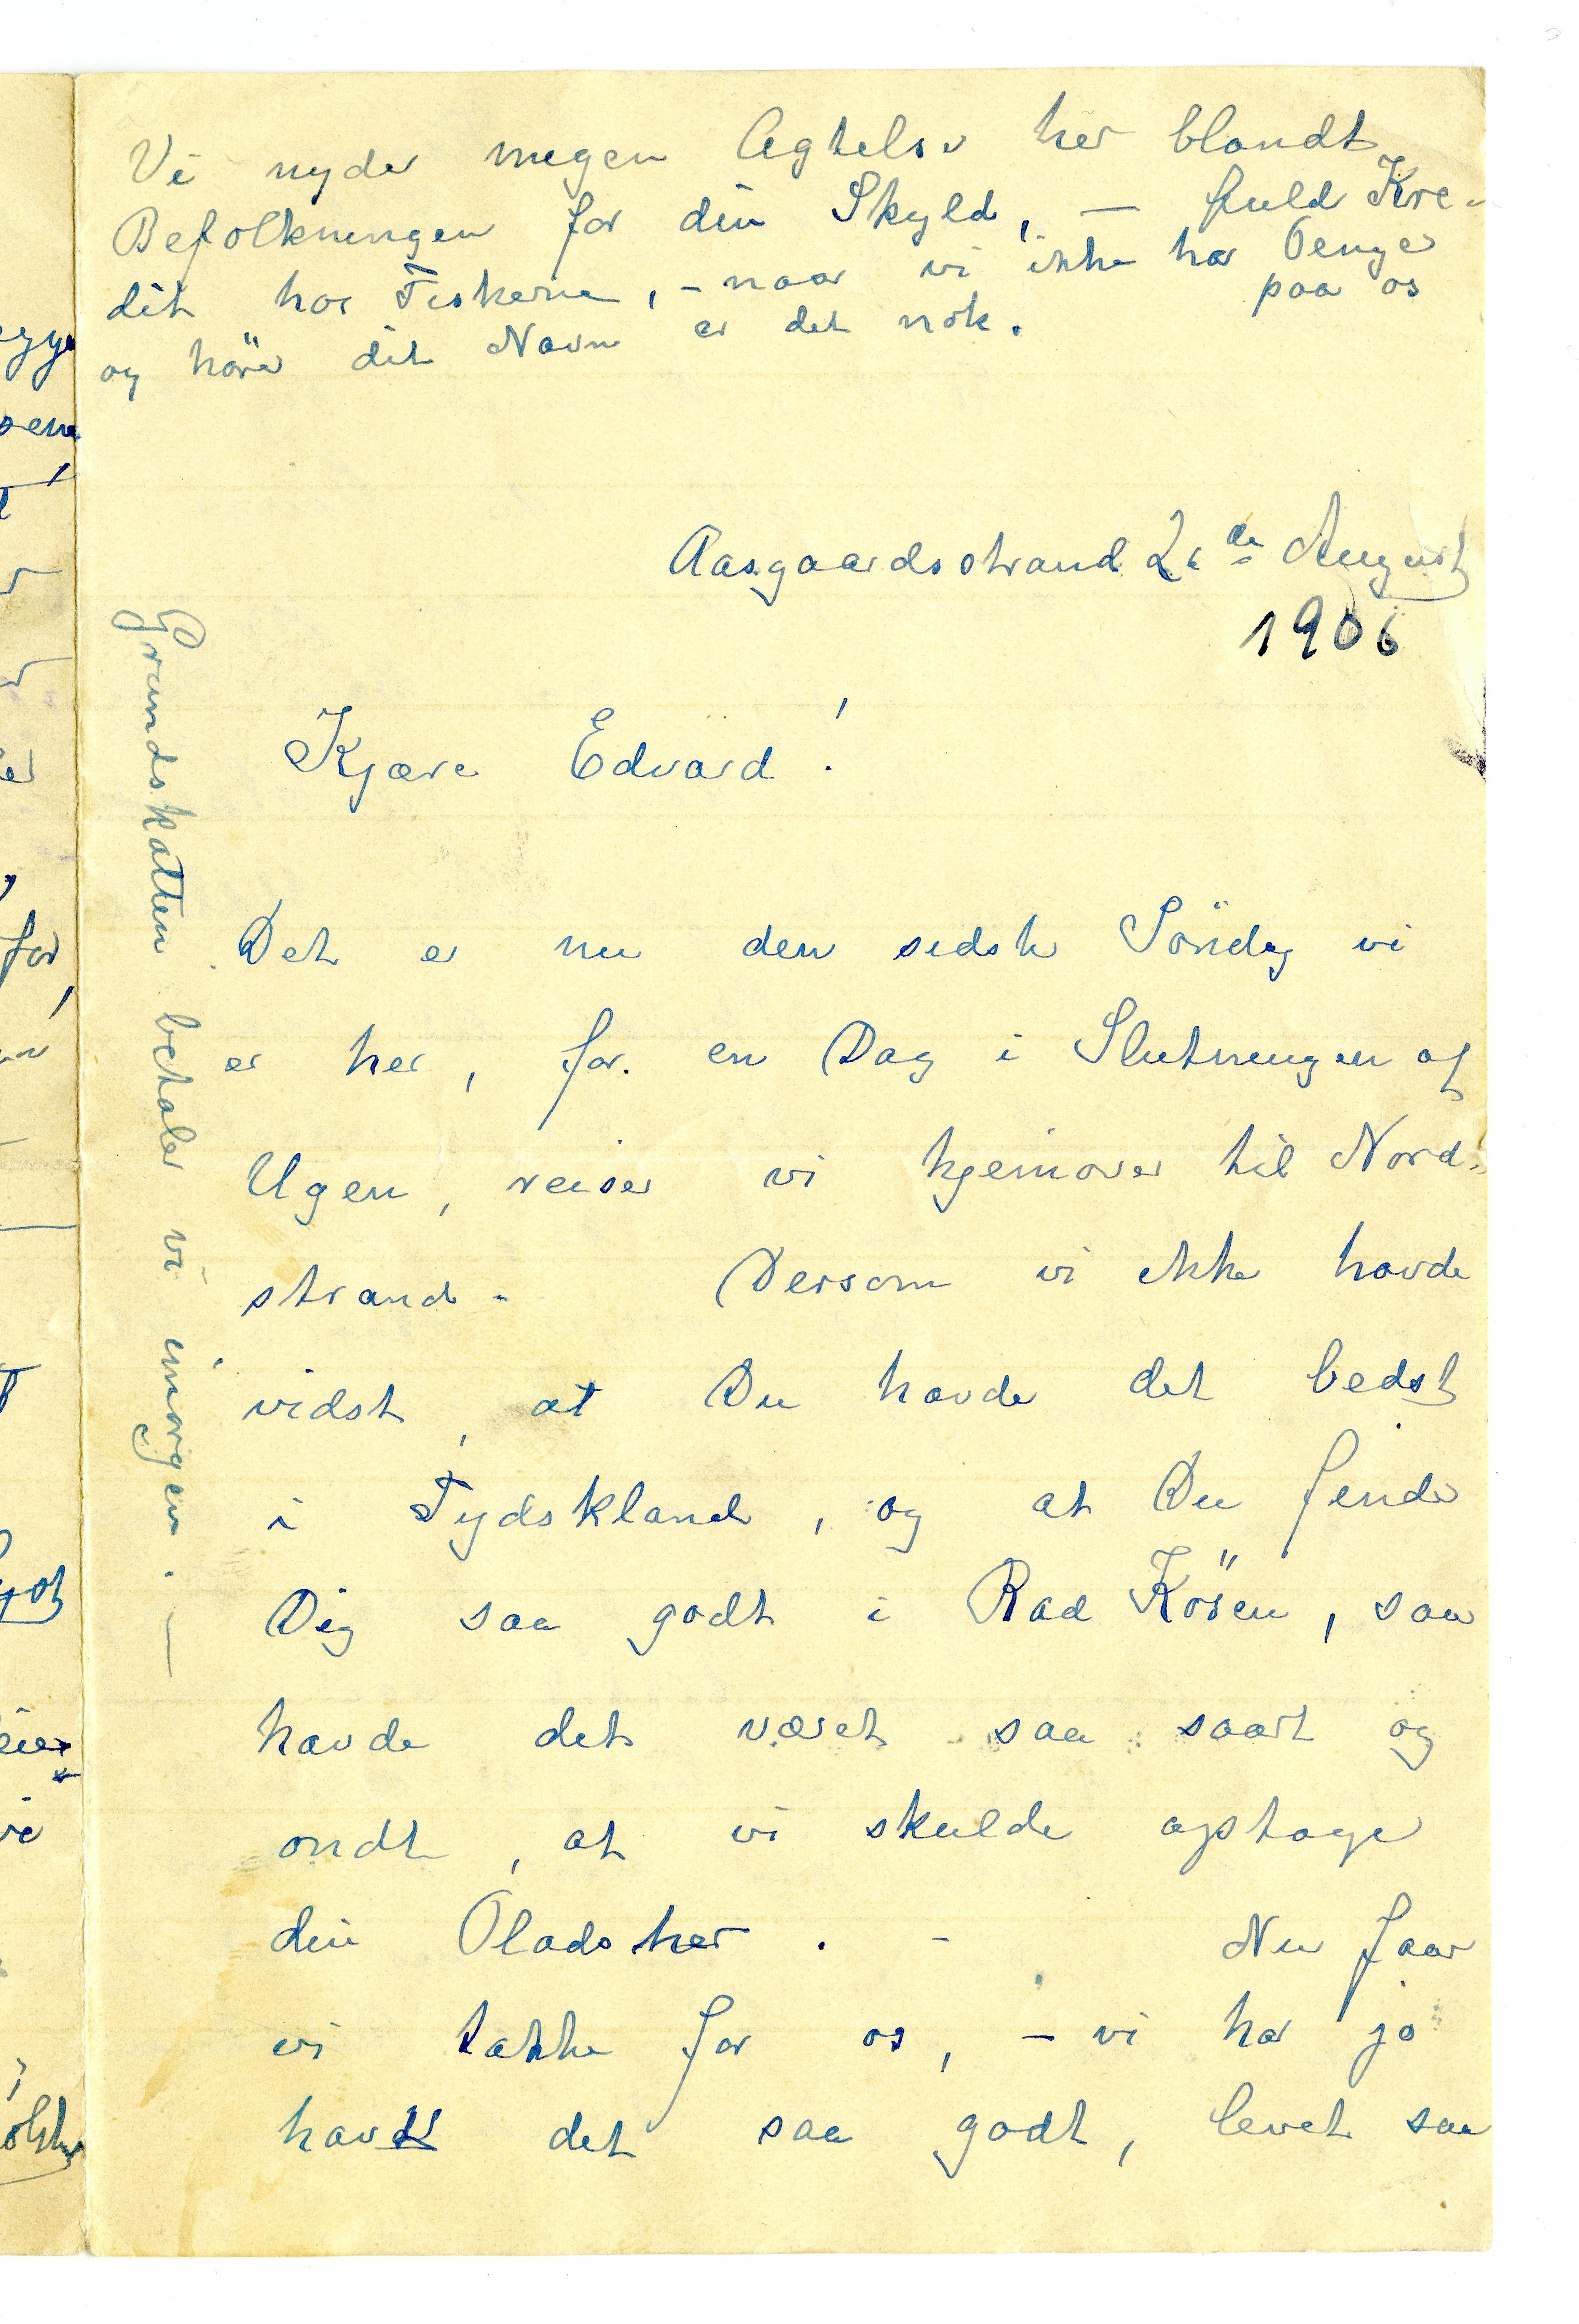 Vi nyder megen Agtelse her blandt
Befolkningen for din Skyld, — fuld Kre-
dit hos Fiskerne, - naar vi ikke har Penge
paa os
og hører dit Navn er det nok.
Aasgaardsstrand 26de August
1906
Kjære Edvard!
Det er nu den sidste Söndag vi
er her, for en Dag i Slutningen af
Ugen, reiser vi hjemover til Nord-
strand - Dersom vi ikke havde
vidst, at Du havde det bedst
i Tydskland, og at Du finder
Dig saa godt i Bad Kösen, saa
havde det været saa saart og
ondt, at vi skulde optage
din Plads her. - Nu faar
vi takke for os, - vi har jo
havt det saa godt, levet saa
Grundskatten betaler vi imorgen. —
egge
for